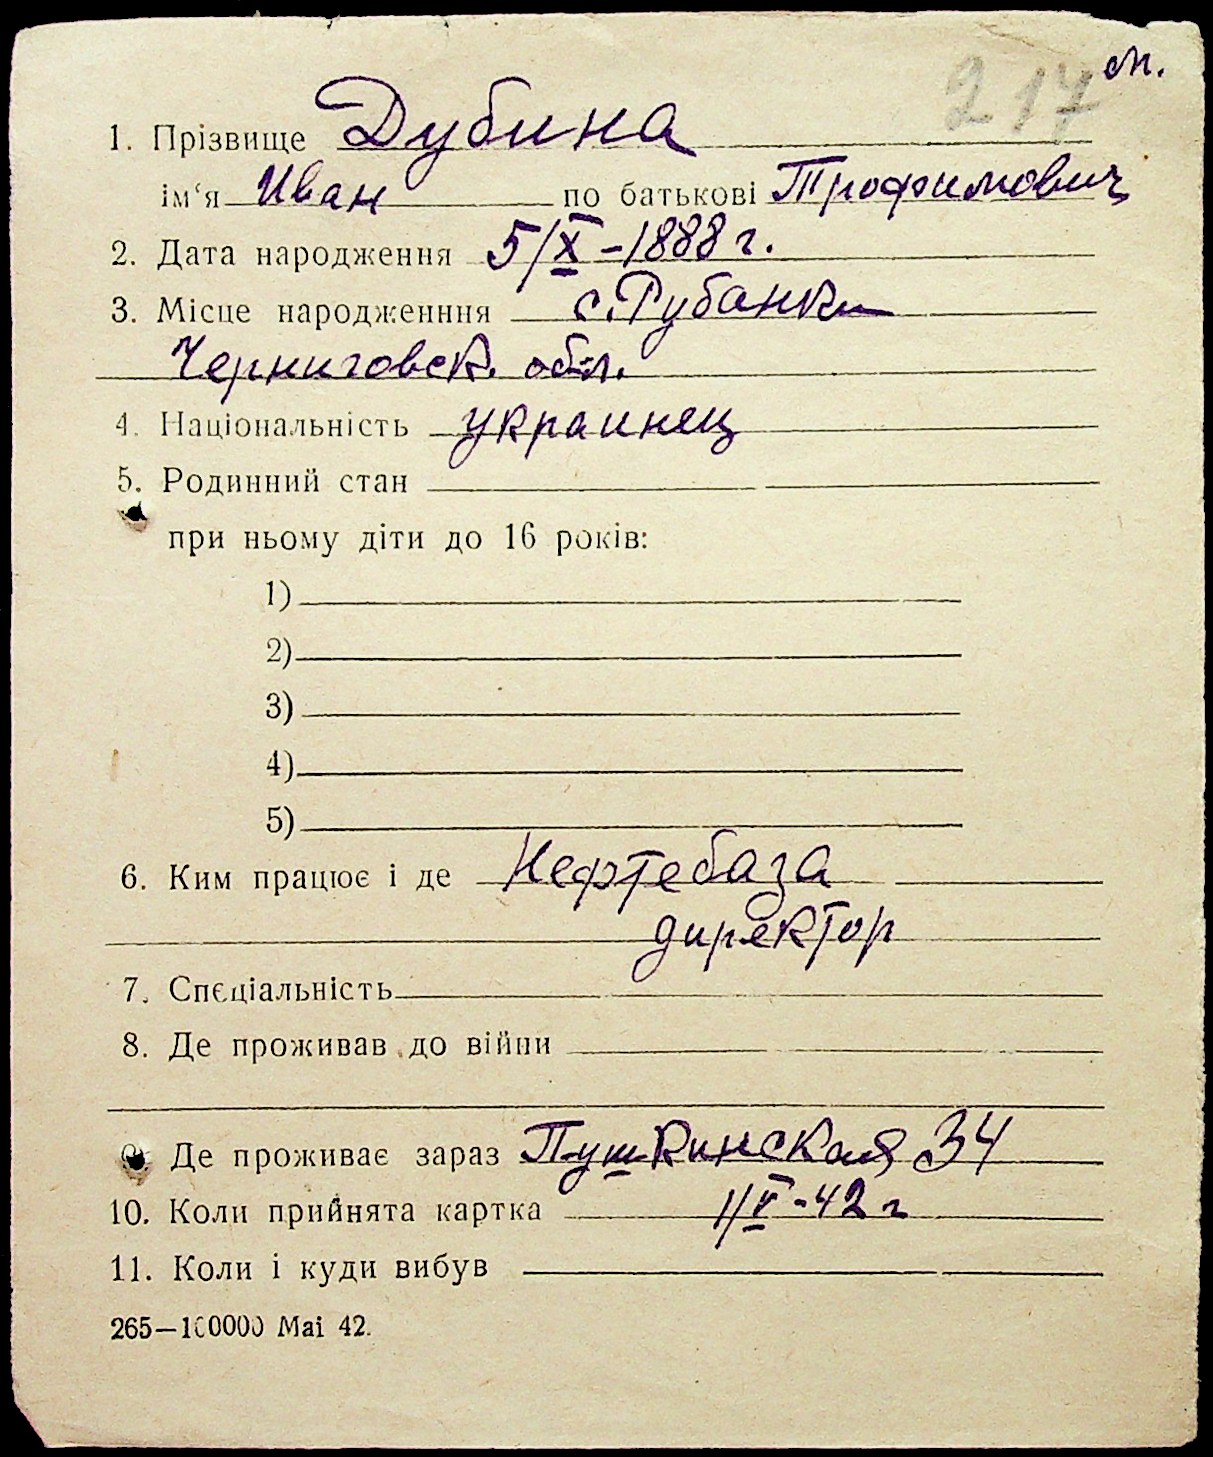 217 м.
1. Прізвище Дубина
ім'я Иван по батькові Трофимович
2. Дата народження 5/X-1888 г.
3. Місце народженння с. Рубанки
Черниговск. обл.
4. Національність украинец
5. Родинний стан
при ньому діти до 16 років:
1)
2)
3)
4)
5)
6. Ким працює і де Нефтебаза
директор
7. Спєціальність
8. Де проживав до війни
9. Де проживає зараз Пушкинская 34
10. Коли прийнята картка 1/V-42 г
11. Коли і куди вибув
265—100000 Mai 42.